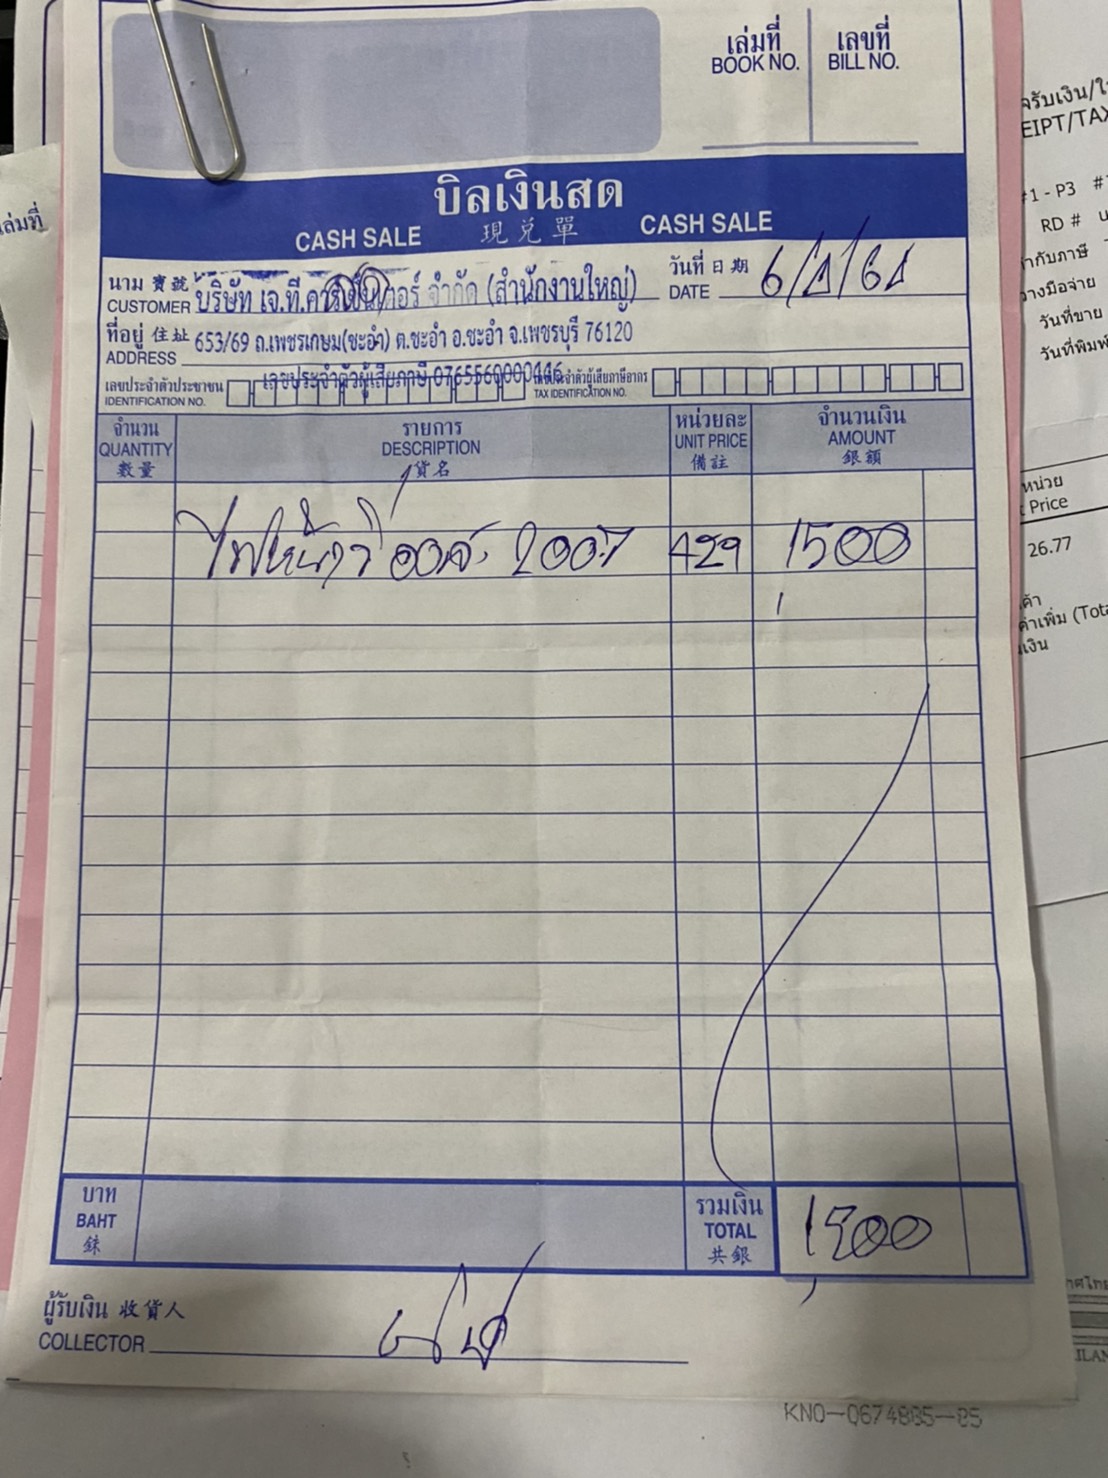 เล่มที่ เลขที่
BOOK NO. BILL NO.
บิลเงินสด
CASH SALE 現兌單 CASH SALE
นาม 寶號 บริษัท เจ.ที.คาร์เซ็นเตอร์ จำกัด (สำนักงานใหญ่) วันที่ 日期 6/1/61
CUSTOMER DATE
ที่อยู่ 住址 653/69 ถ.เพชรเกษม(ชะอำ) ต.ชะอำ อ.ชะอำ จ.เพชรบุรี 76120
ADDRESS
เลขประจำตัวประชาชน เลขประจำตัวผู้เสียภาษี 0765560000446 เลขประจำตัวผู้เสียภาษีอากร
IDENTIFICATION NO. TAX IDENTIFICATION NO.
จำนวน รายการ หน่วยละ จำนวนเงิน
QUANTITY DESCRIPTION UNIT PRICE AMOUNT
數量 貨名 備註 銀額
ไฟหน้า 429 1500
บาท รวมเงิน
BAHT TOTAL 1500
銖 共銀
ผู้รับเงิน 收貨人
COLLECTOR
KNO-0674885-05
ล่มที่
EIPT/TAX
#1 - P3
RD #
ากับภาษี
วางมือจ่าย
วันที่ขาย
วันที่พิมพ์
หน่วย
Price
26.77
ค่าเพิ่ม (Tota
เงิน